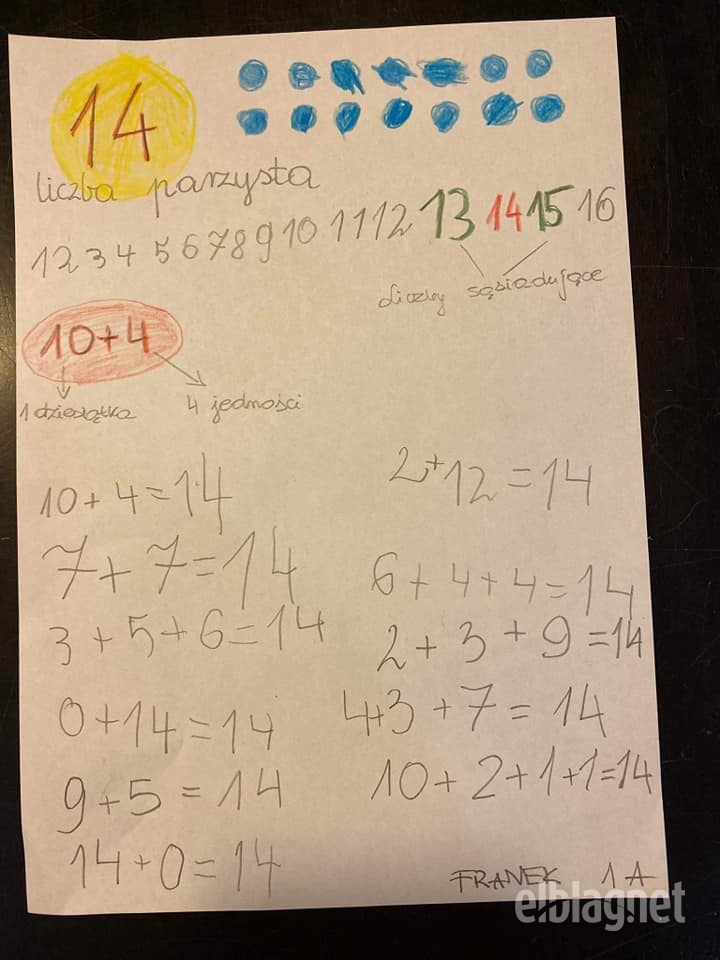 14
liczba parzysta
1 2 3 4 5 6 7 8 9 10 11 12 13 14 15 16
Liczby sąsiadujące
10+4
1 dziesiątka 4 jedności
10+4=14
2+12=14
7+7=14
6+4+4=14
3+5+6=14
2+3+9=14
0+14=14
4+3+7=14
9+5=14
10+2+1+1=14
14+0=14
FRANEK 1A
elblag.net